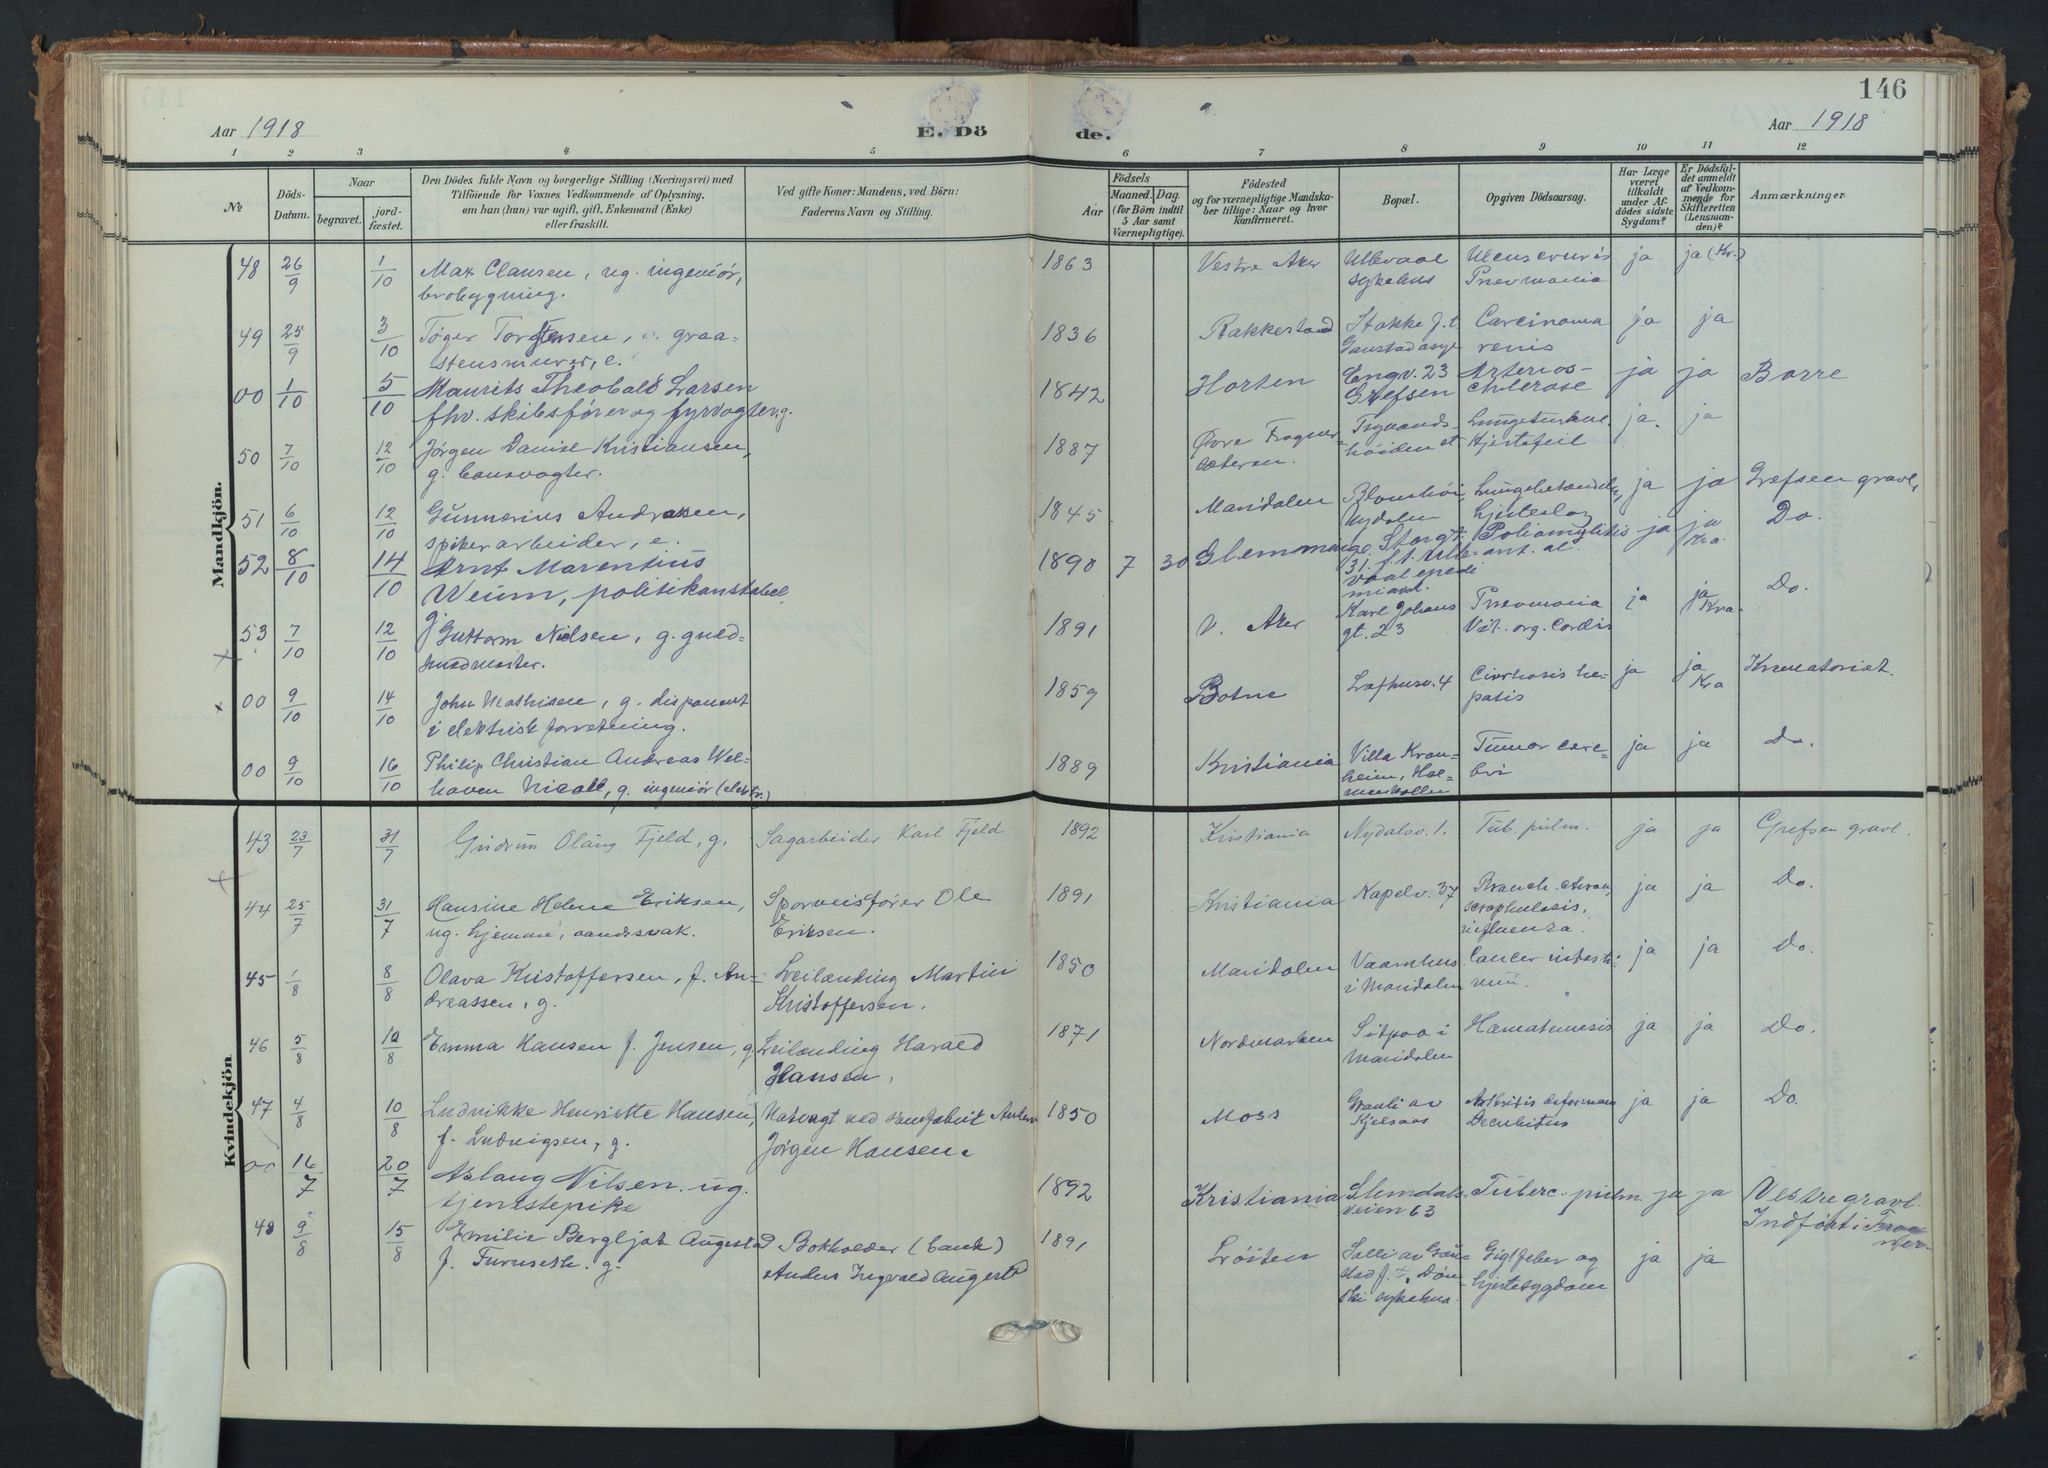 146
Aar 1918
E. Dö
de.
Aar 1918
1 2 3 4 5 6 7 8 9 10 11 12
№
Döds-
Datum.
Naar
begravet.
jord-
fæstet.
Den Dödes fulde Navn og borgerlige Stilling (Næringsvei) med
Tilföiende for Voxnes Vedkommende af Oplysning,
om han (hun) var ugift, gift, Enkemand (Enke)
eller fraskilt.
Ved gifte Koner: Mandens, ved Börn:
Faderens Navn og Stilling.
Födsels
Aar
Maaned. Dag.
(for Börn indtil
5 Aar samt
Værnepligtige).
Födested
og for værnepligtige Mandska-
ber tillige: Naar og hvor
konfirmeret.
Bopæl.
Opgiven Dödsaarsag.
Har Læge
været
tilkaldt
under Af-
dödes sidste
Sygdom?
Er Dödsfal-
det anmeldt
af Vedkom-
mende for
Skifteretten
(Lensman-
den)?
Anmærkninger
Mandkjön.
48 26/9 1/10 Max Clausen, ug. ingeniör, 1863 Vestre Aker Ullevaal Ulcus cruris ja ja (Kr.)
brobygning. sykehus Pnevmonia
49 25/9 3/10 Töger Torgersen, graa- 1836 Rakkestad Stakke f.t. Carcinoma ja ja
stensmurer, e. Gaustad asyl
00 1/10 5/10 Maurits Theobald Larsen 1842 Horten Engv. 23 Arterios- ja ja Borre
fhv. skibsfører og fyrvogter, g. Grefsen clerose
50 7/10 12/10 Jörgen Kristiansen, 1887 Övre Frogner- Tryvands- ja. ja
g. banevogter. sæteren. höiden Hjertefeil
51 6/10 12/10 Gunnerius Andreassen, 1845 Maridalen Nydalen ja ja Grefsen gravl.
spikerarbeider, e. hjerteslag
52 8/10 14/10 Arnt Marentius 1890 7 30 Glemminge Storgt. Poliomylitis ja ja Kra. Do.
Weum, politikonstabel, 31. f.t. Ulle- ant. al.
vaal epede
miavd.
53 7/10 12/10 Guttorm Nielsen, g. 1891 V. Aker Karl Johans Pnevmonia ja ja Kra. Do.
gt. 23 Vit. org. Cordis
00 9/10 14/10 John Mathisen, g. disponent 1859 Botne Lofhusv. 4 Cirrhosis he- ja ja Kra Krematoriet.
i elektrisk forretning. patis
00 9/10 16/10 Philip Christian Andreas Wel- 1889 Kristiania Villa Kron- Tumor cere- ja ja Do.
haven Nicoll, g. ingeniör (elektr.) heim, Hol- bri
menkollen
Kvindekjön
43 23/7 31/7 Gudrun Fjeld, g. Sagarbeider Karl Fjeld 1892 Kristiania Nydalsv. 1. Tub. pulm. ja ja Grefsen gravl.
44 25/7 31/7 Hansine Helene Eriksen, Sporveisfører Ole 1891 Kristiania Kapelv. 37 ja ja Do.
ug. hjemme, aandssvak. Eriksen. scrophulosis,
influenza.
45 1/8 8/8 Olava Kristoffersen, f. An- Leilænding Martin 1850 Maridalen Vaarnhus Cancer intesti- ja ja Do.
dreassen, g. Kristoffersen. i Maridalen num.
46 5/8 10/8 Emma Hansen f. Jensen, g. Leilænding Harald 1871 Nordmarken i Hæmatemesis ja ja Do.
Hansen, Maridalen
47 4/8 10/8 Ludvikke Henriette Hansen, Natvagt ved 1850 Moss Granli av Arthritis deformans ja ja Do.
f. Ludvigsen, g. Jörgen Hansen. Kjelsaas Decubitus
00 16/7 20/7 Aslaug Nilsen ug. 1892 Kristiania Slemdals- Tuberc. pulm. ja ja Vestre gravl.
tjenestepike veien 63 Indført i Frog
ner.
48 9/8 15/8 Emilie Bergljot Augestad Bokholder (bank) 1891 Löiten Solli av Gau- Gigtfeber og ja ja
f. Furuseth. g. Anders Ingvald Augestad stad f.t. hjertesygdom
sykehus.